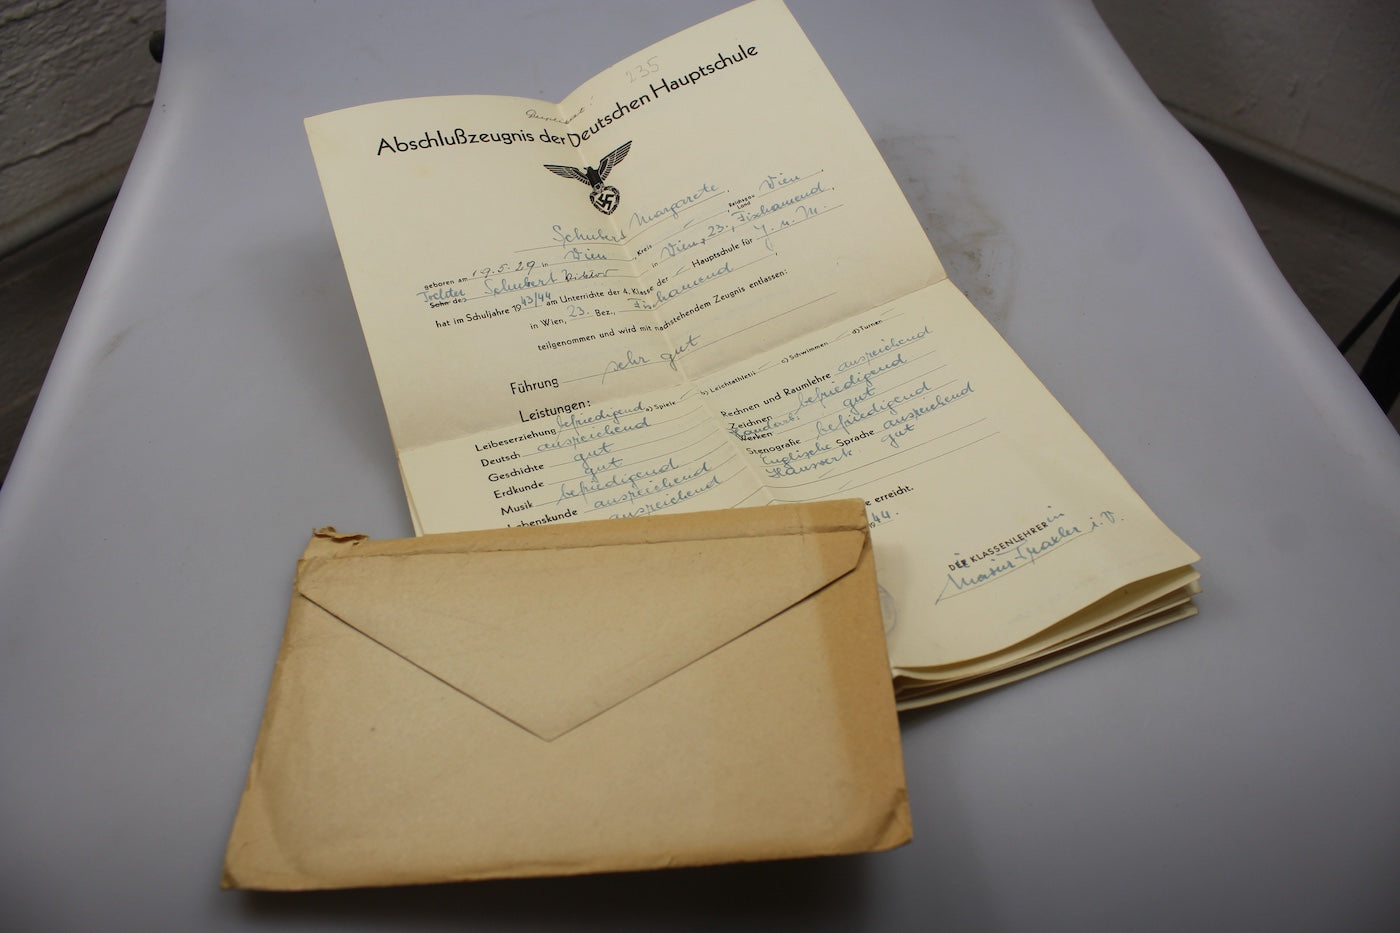 235
Abschlußzeugnis der Deutschen Hauptschule
Schubert Margarete,
geboren am 19.5.29 in Wien, Kreis Reichsgau Land Wien,
Tochter Sohn des Schubert Viktor in Wien, 23., Fischamend,
hat im Schuljahre 1943/44 am Unterrichte der 4. Klasse der Hauptschule für J. u. M.
in Wien, 23. Bez., Fischamend,
teilgenommen und wird mit nachstehendem Zeugnis entlassen:
Führung sehr gut
Leistungen:
Leibeserziehung befriedigend a) Spiele b) Leichtathletik c) Schwimmen d) Turnen
Deutsch ausreichend
Geschichte gut
Erdkunde gut
Musik befriedigend
Lebenskunde ausreichend
ausreichend
Rechnen und Raumlehre ausreichend
Zeichnen befriedigend
Handarb. Werken gut
Stenografie befriedigend
Englische Sprache ausreichend
Hauswerk gut
e erreicht.
1944.
DIE KLASSENLEHRERin
i. V.